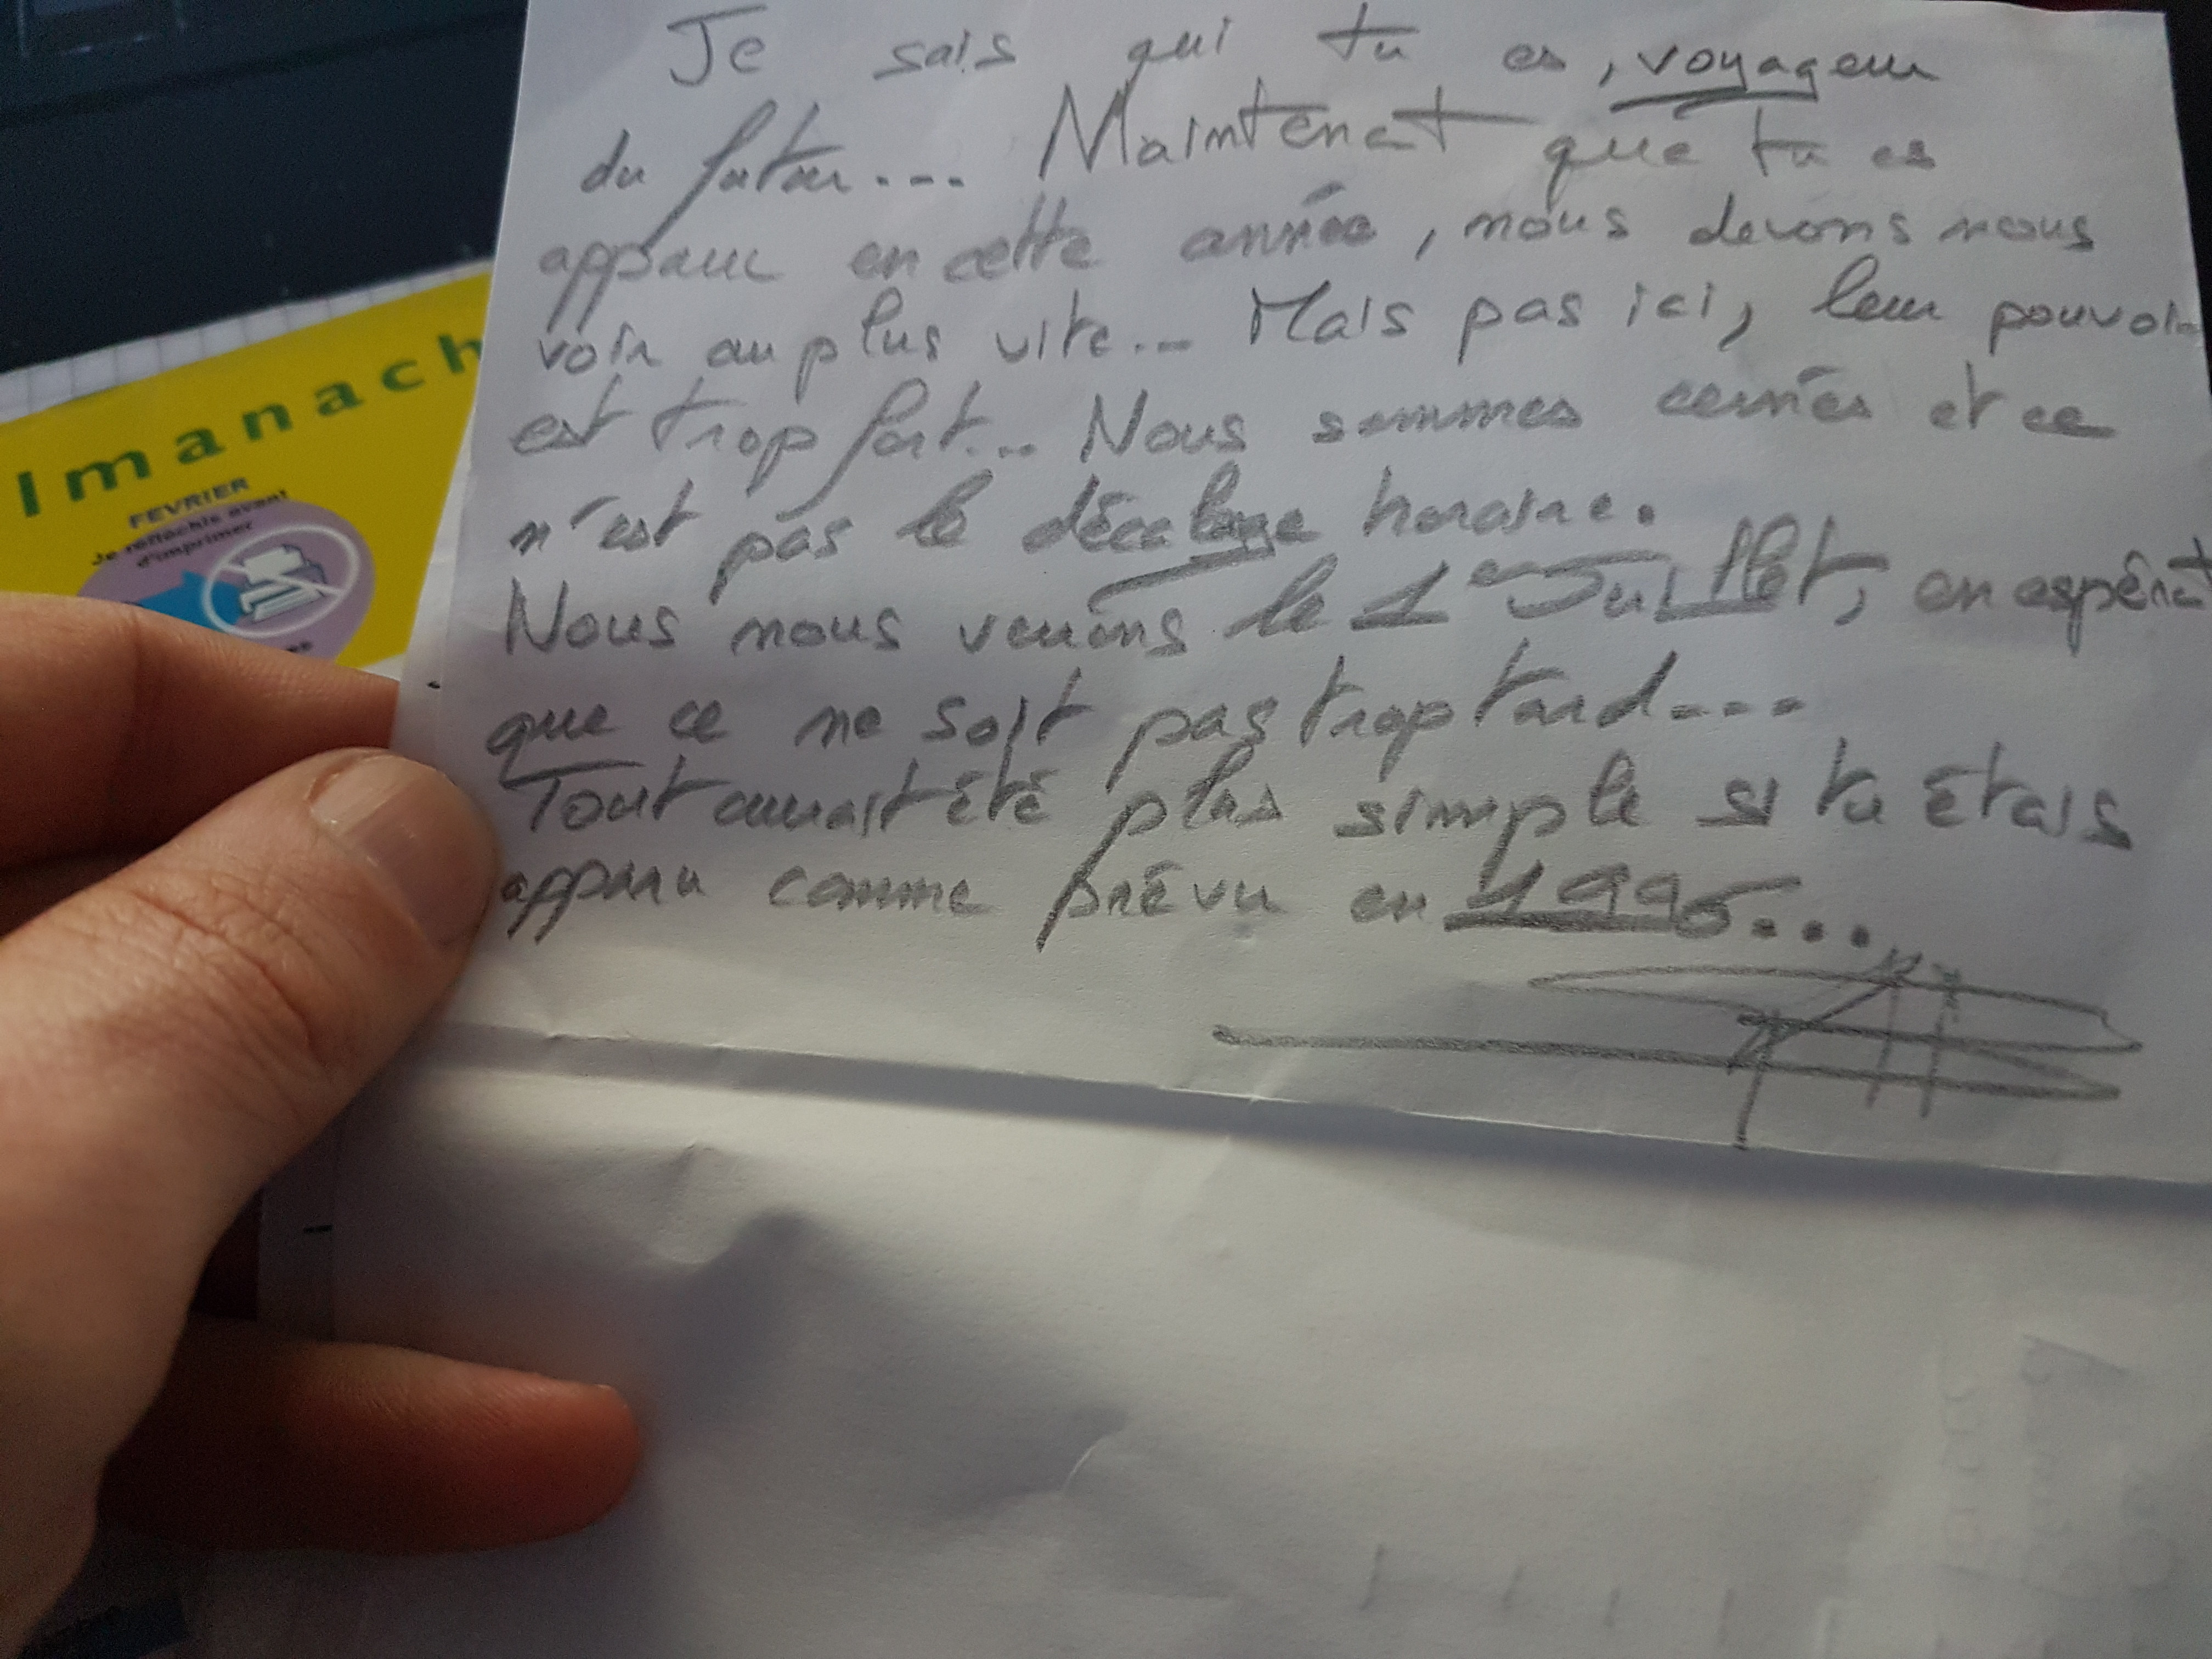 Je sais qui tu es, voyageur
du futur... Maintenat que tu es
apparu en cette année, nous devons nous
voir au plus vite... Mais pas ici, leur pouvoir
est trop fort... Nous sommes cernés et ce
n'est pas le décalage horaire.
Nous nous verrons le 1er Juillet, en espérat
que ce ne soit pas trop tard...
Tout aurait été plus simple si tu étais
apparu comme prévu en 1996...
lmanach
FEVRIER
Je réfléchis avant
d'imprimer